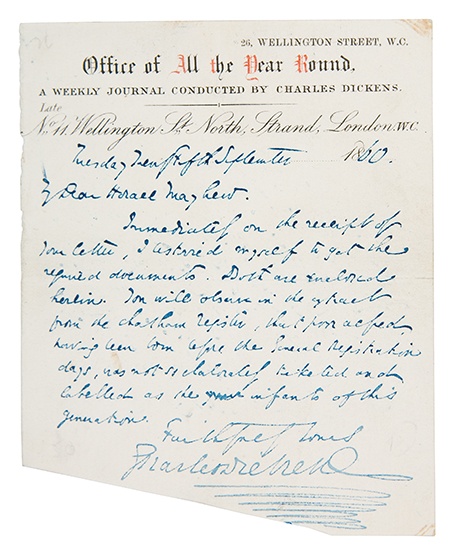 26, WELLINGTON STREET, W.C.
Office of All the Year Round,
A WEEKLY JOURNAL CONDUCTED BY CHARLES DICKENS.
Late
No. 11, Wellington St. North, Strand, London. W.C.
Tuesday Twenty Fifth September 1860.
My Dear Horace Mayhew.
Immediately on the receipt of
Your letter, I exerted myself to get the
required documents. Both are enclosed
herein. You will observe in the extract
from the Chatham Register, that poor Alfred
having been born before the General Registration
days, was not so elaborately ticketed and
labelled as the infants of this
generation.
Faithfully Yours
Charles Dickens